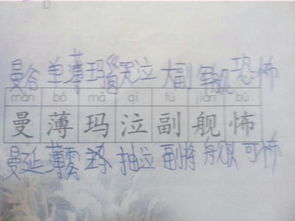 曼谷 单薄 玛瑙 哭泣 大副 军舰 恐怖
màn bó mǎ qì fù jiàn bù
曼 薄 玛 泣 副 舰 怖
曼延 薄雾 抽泣 副将 舰队 可怖